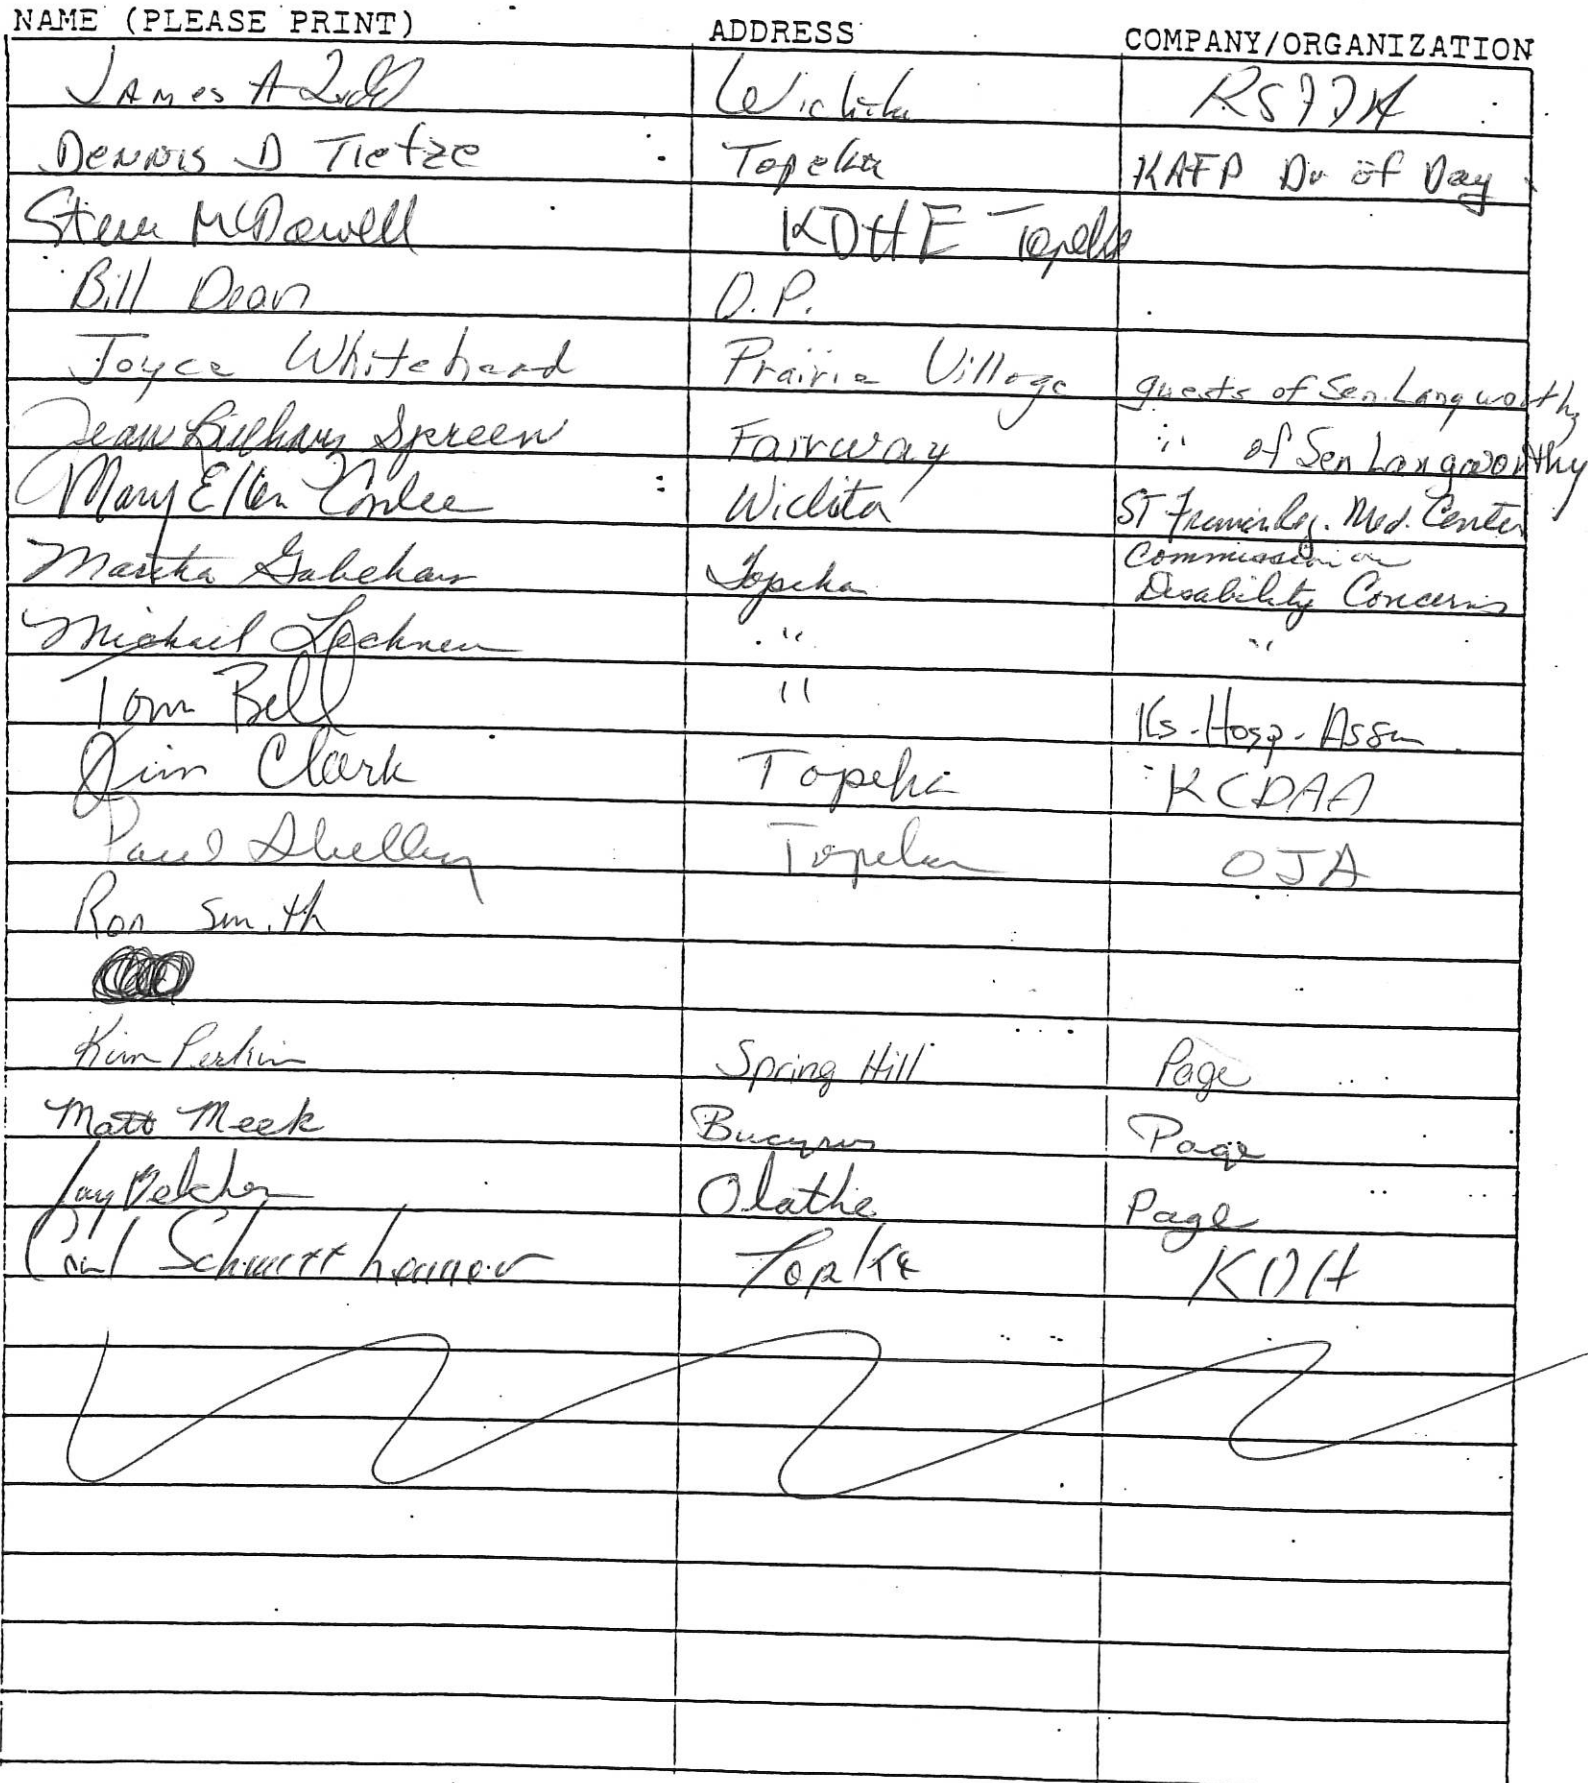 NAME (PLEASE PRINT) ADDRESS COMPANY/ORGANIZATION
James A Wichita
Dennis D Tietze Topeka KAFP Dr of Day
Steve McDowell KDHE Topeka
Bill Dean O.P.
Joyce Whitehead Prairie Village guests of Sen. Langworthy
Jean Spreen Fairway " of Sen Langworthy
Mary Ellen Conlee Wichita ST Francis Reg. Med. Center
Martha Gabehart Topeka Commission on
Disability Concerns
Michael Lechner " "
Tom Bell " Ks. Hosp. Assn
Jim Clark Topeka KCDAA
Paul Shelby Topeka OJA
Ron Smith
Kim Perkin Spring Hill Page
Matt Meek Bucyrus Page
Jay Olathe Page
Schmitthenner KDH